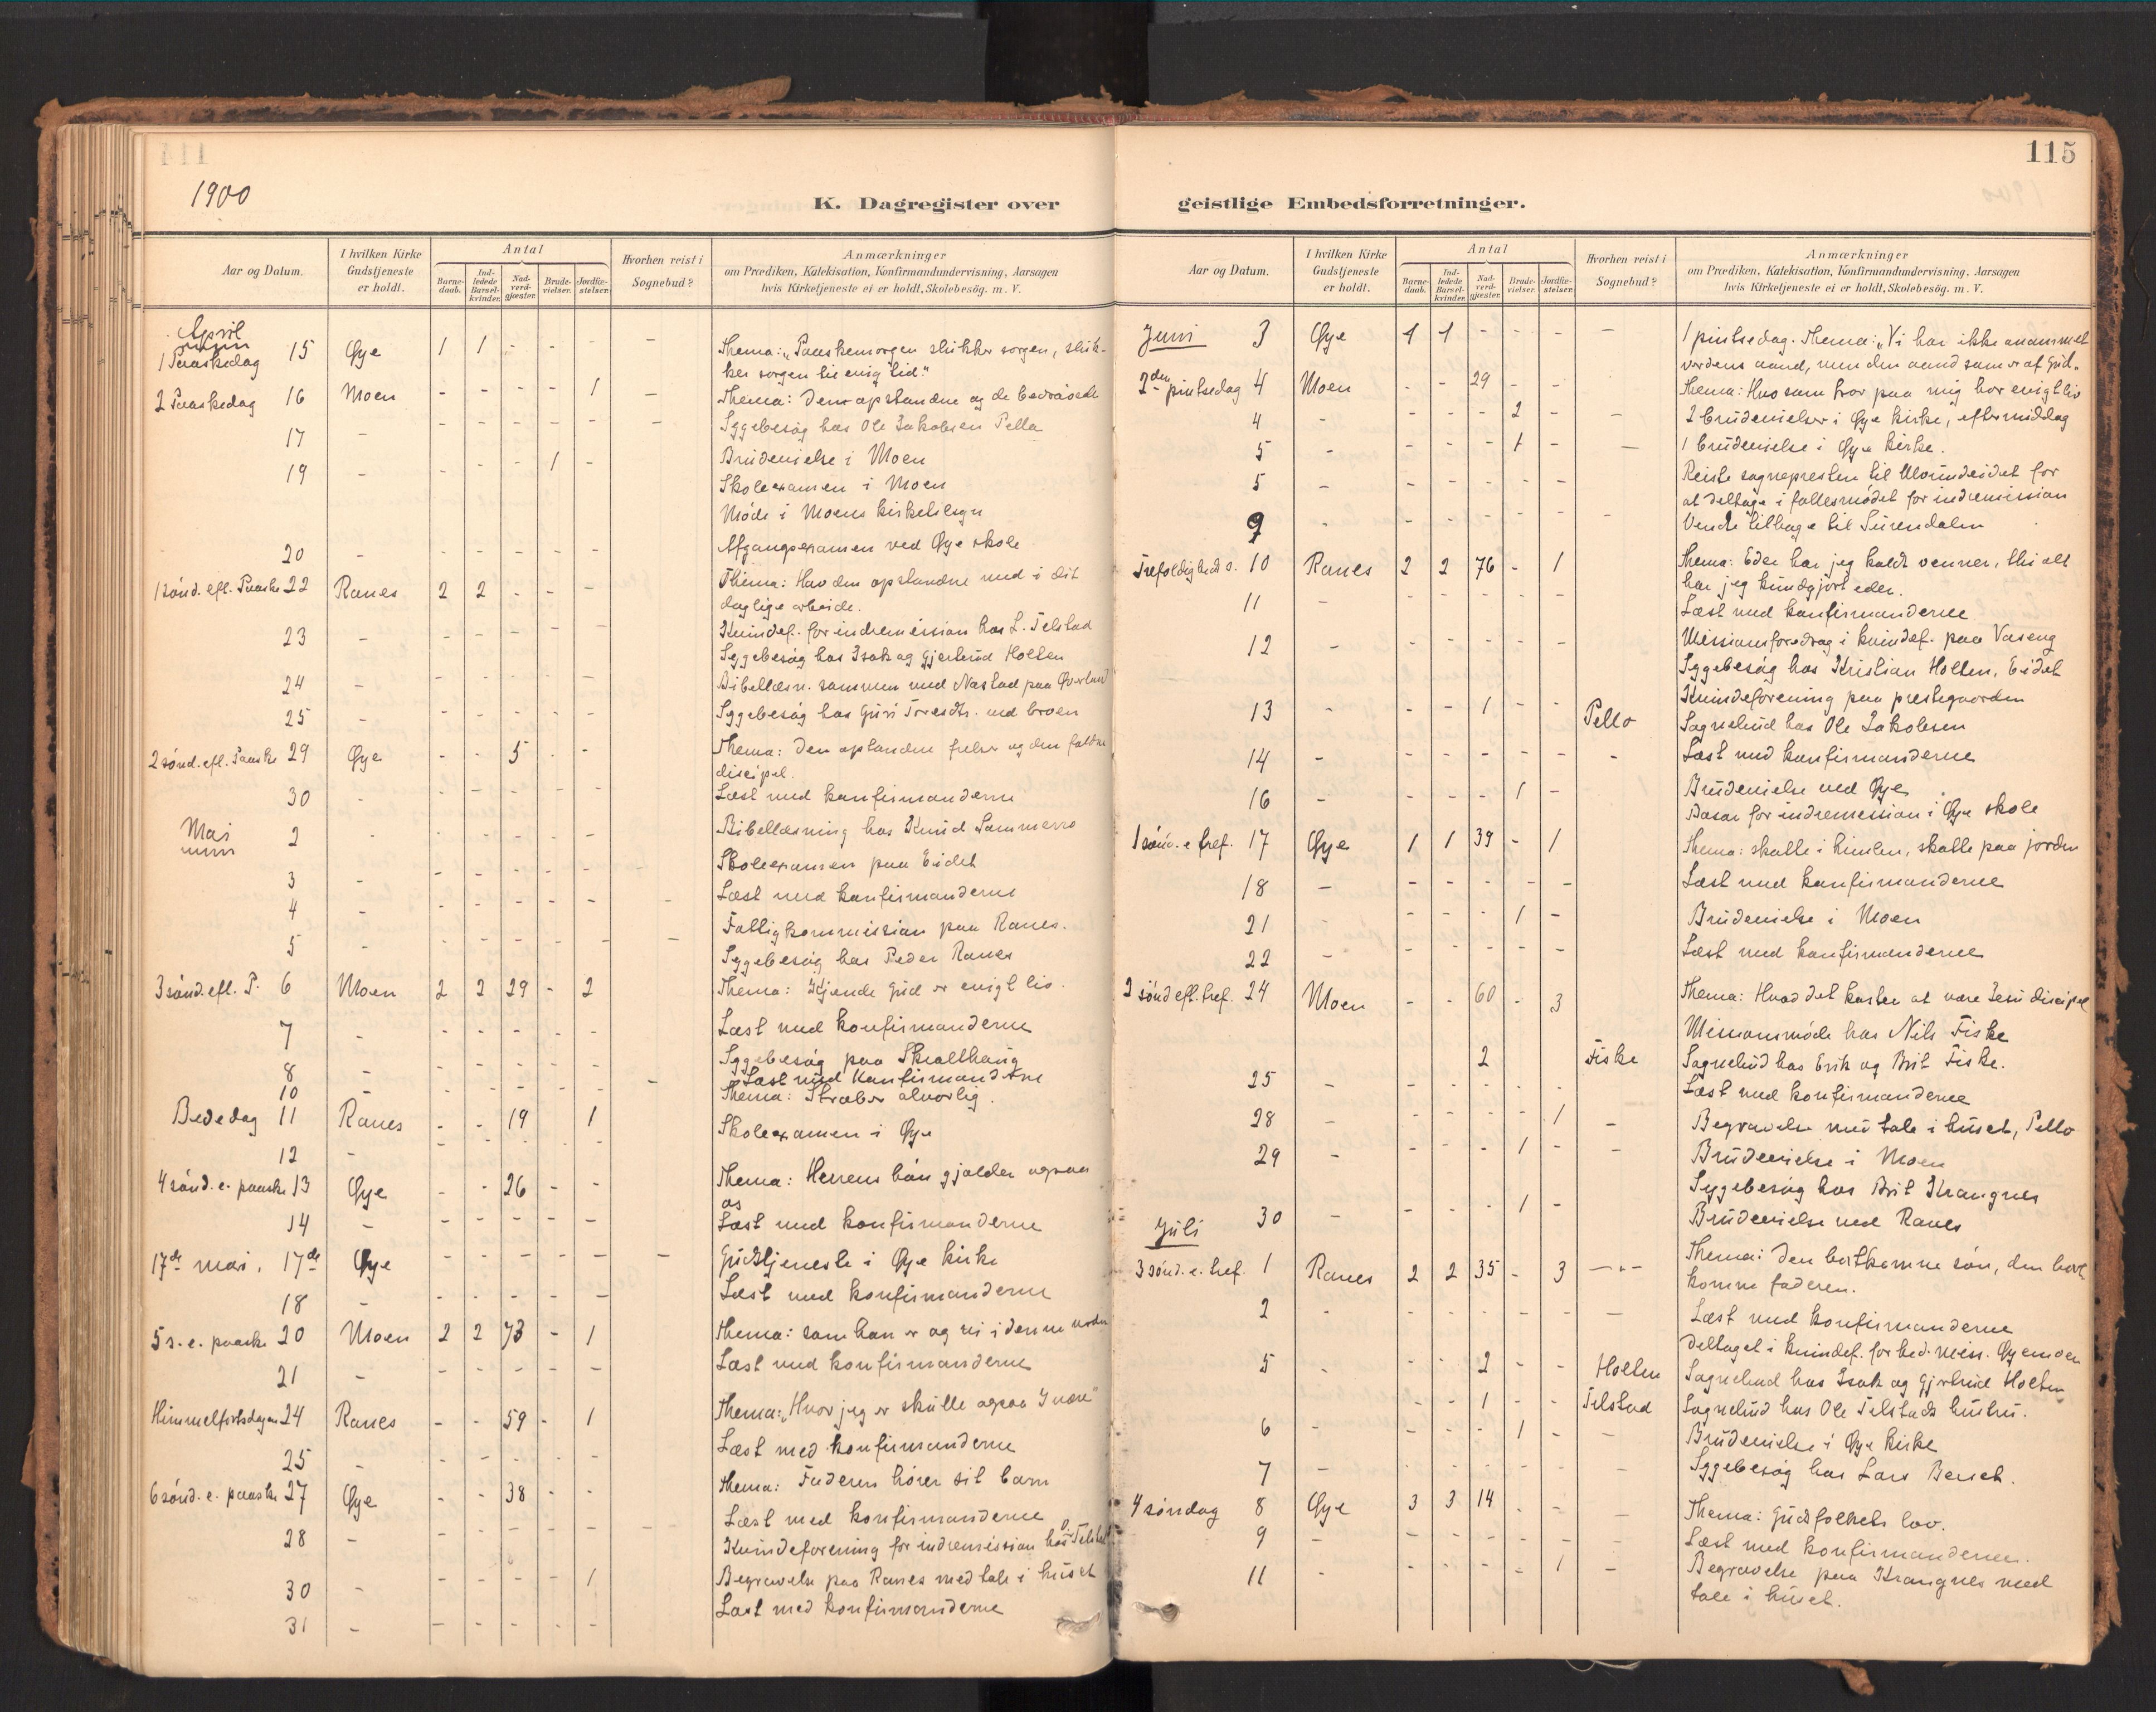 1900
K. Dagregister over
Aar og Datum. I hvilken Kirke Gudstjeneste er holdt. Antal Barne-daab. Ind-ledede Barsel-kvinder. Nad-verd-gjæster. Brude-vielser. Jordfæ-stelser. Hvorhen reist i Sognebud? Anmærkninger om Prædiken, Katekisation, Konfirmandundervisning, Aarsagen hvis Kirketjeneste ei er holdt, Skolebesög. m. V.
April
1 Paaskedag 15 Øye 1 1 - - - - Thema: „Paaskemorgen slukker sorgen, sluk-
ker sorgen til evig tid."
2 Paaskedag 16 Moen - - - - 1 - Thema: Den opstandne og de bedrøvede
17 - - - - - - - Sygebesøg hos Ole Jakobsen Pella
19 - - - - 1 - Brudevielse i Moen
Skoleexamen i Moen
Møde i Moens kirketilsyn
20 - - - - - - Afgangsexamen ved Øye skole
1 sønd. eft. Paaske 22 Ranes 2 2 - - - Thema: Hav den opstandne med i dit
daglige arbeide.
23 - - - - - - Kvindef. for indremission hos L. Telstad
Sygebesøg hos Isak og Gjertrud Holten
24 - - - - - Bibellæsn. sammen med Nastad paa Qverland
25 - - - - - - Sygebesøg hos Guri Toresdtr. ved broen
2 sønd. eft. Paaske 29 Øye - - 5 - - Thema: Den opstandne frelser og den faldne
discipel.
30 - - - - - - Læst med konfirmanderne
Mai 2 - - - - - - Bibellæsning hos Knud Sommerro
Skoleexamen paa Eidet
3 - - - - - - Læst med konfirmanderne
4 - - - - - - - Fattigkommission paa Ranes.
5 - - - - - - - Sygebesøg hos Peder Ranes
3 sønd. eft. P. 6 Moen 2 2 29 - 2 Thema: Kjende Gud er evigt liv.
7 - - - - - - Læst med konfirmanderne
8 - - - - - - Sygebesøg paa Skralthaug
10 - - - - - - Læst med Konfirmanderne
Bededag 11 Ranes - - 19 1 Thema: Stræber alvorlig.
12 - - - - - - Skoleexamen i Øye
4 sønd. e. paaske 13 Øye - - 26 - - Thema: Herrens bøn gjælder ogsaa
os
14 - - - - - - Læst med konfirmanderne
17de mai. 17de Øye - - - - - - Gudstjeneste i Øye kirke
18 - - - - - - Læst med konfirmanderne
5 s. e. paaske 20 Moen 2 2 73 - 1 Thema: som han er og vi i denne verden
21 - - - - - - Læst med konfirmanderne
Himmelfartsdagen 24 Ranes - - 59 - 1 Thema: „Hvor jeg er skulle ogsaa I være"
25 - - - - - - Læst med konfirmanderne
6 sønd. e. paaske 27 Øye - - 38 - - Thema: Faderen hører sit barn
28 - - - - - - - Læst med konfirmanderne
Kvindeforening for indremission hos O. Telstad
30 - - - - - 1 Begravelse paa Ranes med tale i huset
31 - - - - - - Læst med konfirmanderne
115
geistlige Embedsforretninger.
Aar og Datum. I hvilken Kirke Gudstjeneste er holdt. Antal Barne-daab. Ind-ledede Barsel-kvinder. Nad-verd-gjæster. Brude-vielser. Jordfæ-stelser. Hvorhen reist i Sognebud? Anmærkninger om Prædiken, Katekisation, Konfirmandundervisning, Aarsagen hvis Kirketjeneste ei er holdt, Skolebesög. m. V.
Juni 3 Øye 1 1 - - - - 1 pintsedag. Thema: „Vi har ikke anammet
verdens aand, men den aand som er af Gud.„
2den pintsedag 4 Moen - - 29 - - Thema: Hvo som tror paa mig har evigt liv
4 - - - - 2 - - 2 brudevielser i Øye kirke, eftermiddag
5 - - - - 1 - - 1 brudevielse i Øye kirke.
5 - - - - - - Reiste sognepresten til for
at deltage i fællesmødet for indremission
9 - - - - - - - Vendte tilbage til Surendalen
Trefoldigheds s. 10 Ranes 2 2 76 - 1 Thema: Eder har jeg kaldt venner, thi alt
har jeg kundgjort eder.
11 - - - - - - Læst med konfirmanderne
12 - - - - - - Missionsforedrag i kvindef. paa Vaseng
Sygebesøg hos Kristian Holten, Eidet
Kvindeforening paa prestegaarden
13 - - - 1 - - Pello Sognebud hos Ole Jakobsen
14 - - - - - - - Læst med konfirmanderne
16 - - - - 1 - Brudevielse ved Øye
Basar for indremission i Øye skole
1 sønd. e tref. 17 Øye 1 1 39 - 1 Thema: skatte i himlen, skatte paa jorden
18 - - - - - - Læst med konfirmanderne
21 - - - - 1 - Brudevielse i Moen
22 - - - - - - Læst med konfirmanderne
2 sønd eft. tref. 24 Moen - - 60 - 3 Thema: Hvad det koster at være Jesu discipel
Missionsmøde hos Nils Fiske
2 Fiske Sognebud hos Erik og Brit Fiske.
25 - - - - - - Læst med konfirmanderne
28 - - - - - 1 - Begravelse med tale i huset, Pello
29 - - - - 1 - - Brudevielse i Moen
Sygebesøg hos Brit Krangnes
30 - - - - 1 - Brudevielse ved Ranes
Juli
3 sønd. e. tref. 1 Ranes 2 2 35 - 3 - - - Thema: Den bortkomne søn, den bort-
komne faderen.
2 - - - - - - - Læst med konfirmanderne
Deltaget i kvindef. for hed. miss. Øyemoen
5 - - - 2 - - Holten Sognebud hos Isak og Gjertrud Holten
- - 1 - - Telstad Sognebud hos Ole Telstads hustru.
6 - - - - 1 - - Brudevielse i Øye kirke
7 - - - - - - - Sygebesøg hos Lars
4 søndag 8 Øye 3 3 14 - - - Thema: Gudsfolkets lov.
9 - - - - - - - Læst med konfirmanderne.
11 - - - - - 1 - Begravelse paa Krangnes med
tale i huset.